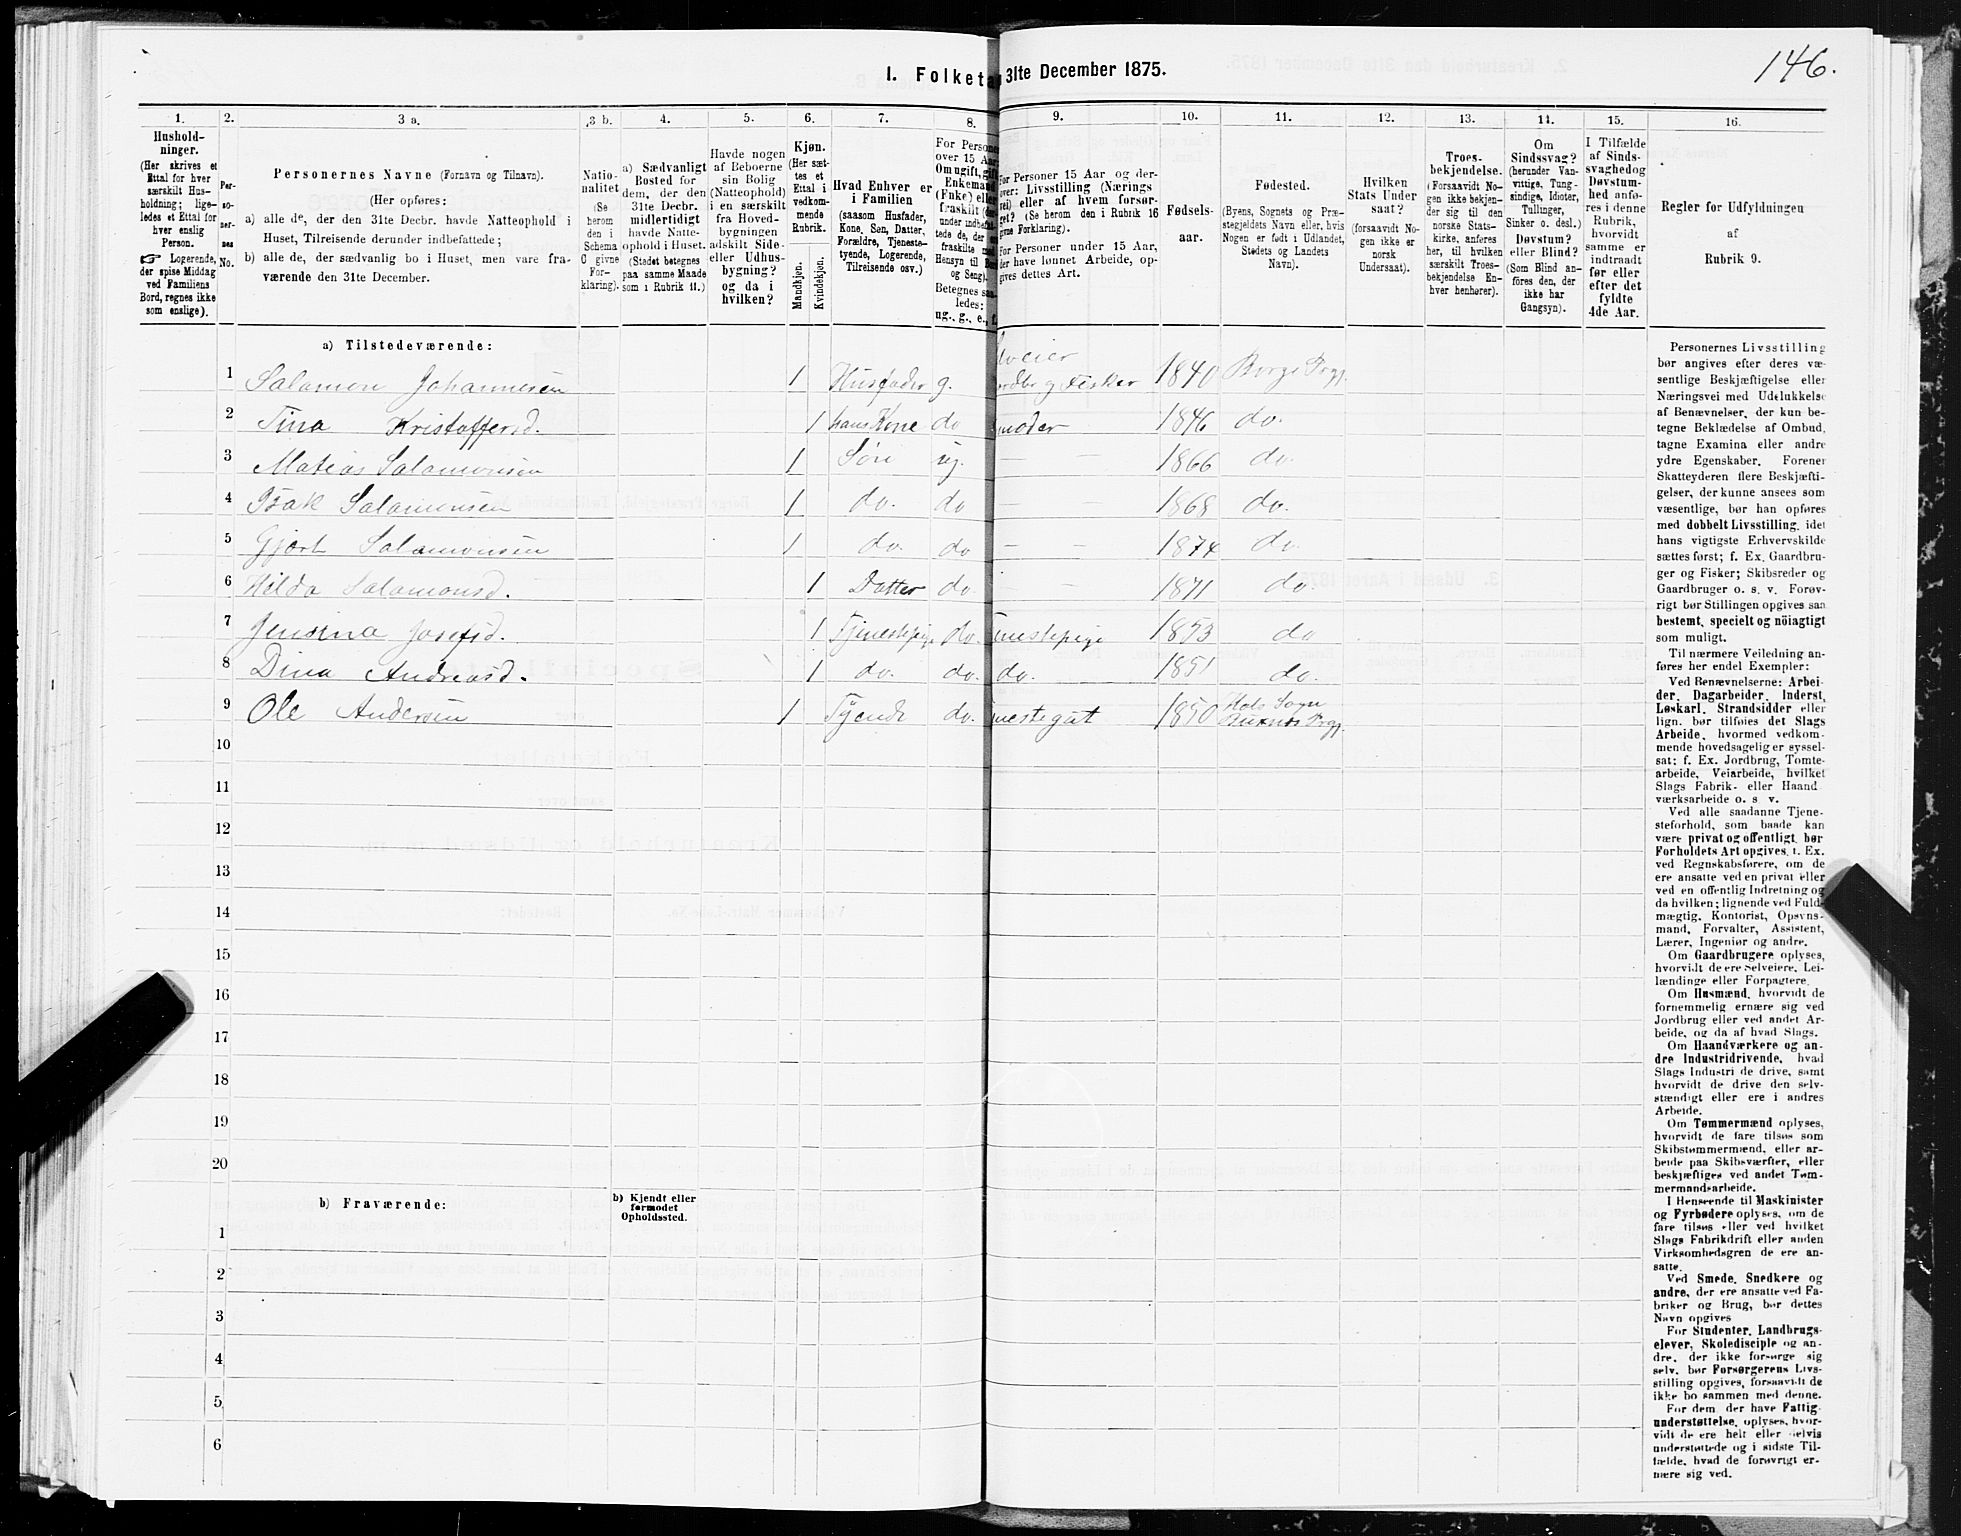 146.
I. Folketa 31te December 1875.
1. 2. 3 a. 3 b. 4. 5. 6. 7. 8. 9. 10. 11. 12. 13. 14. 15. 16.
Hushold-
ninger.
(Her skrives et
Ettal for hver
særskilt Hus-
holdning; lige-
ledes et Ettal for
hver enslig
Person.
☞ Logerende,
der spise Middag
ved Familiens
Bord, regnes ikke
som enslige).
Per-
so-
ner-
nes
No.
Personernes Navne (Fornavn og Tilnavn).
(Her opføres:
a) alle de, der den 31te Decbr. havde Natteophold i
Huset, Tilreisende derunder indbefattede;
b) alle de, der sædvanlig bo i Huset, men vare fra-
værende den 31te December.
Natio-
nalitet
(Se
herom
den i
Schema
C givne
For-
klaring).
a) Sædvanligt
Bosted for
dem, der den
31te Decbr.
midlertidigt
havde Natte-
ophold i Huset.
(Stedet betegnes
paa samme Maade
som i Rubrik 11.)
Havde nogen
af Beboerne
sin Bolig
(Natteophold)
i en særskilt
fra Hoved-
bygningen
adskilt Side-
eller Udhus-
bygning?
og da i
hvilken?
Kjøn.
(Her sæt-
tes et
Ettal i
vedkom-
mende
Rubrik.
Mandkjøn.
Kvindekjøn.
Hvad Enhver er
i Familien
(saasom Husfader,
Kone, Søn, Datter,
Forældre, Tjeneste-
tyende, Logerende,
Tilreisende osv.)
For Persone
over 15 Aar
Om ugift, gift
Enkemand
(Enke) eller
fraskilt
under indbefat-
tede de, der
fraskilte med
Hensyn til Bo
og Seng).
Betegnes saa-
ledes:
ug., g., e., f.
For Personer 15 Aar og der-
over: Livsstilling (Nærings
vei) eller af hvem forsør-
get? (Se herom den i Rubrik 16
givne Forklaring).
For Personer under 15 Aar,
der have lønnet Arbeide, op-
gives dettes Art.
Fødsels-
aar.
Fødested.
(Byens, Sognets og Præ-
stegjeldets Navn eller, hvis
Nogen er født i Udlandet,
Stedets og Landets
Navn).
Hvilken
Stats Under
saat?
(forsaavidt No-
gen ikke er
norsk
Undersaat).
Troes-
bekjendelse.
(Forsaavidt No-
gen ikke bekjen-
der sig til den
norske Stats-
kirke, anføres
her, til hvilken
særskilt Troes-
bekjendelse En-
hver henhører).
Om
Sindssvag?
(herunder Van-
vittige, Tung-
sindige, Idioter,
Tullinger,
Sinker o. desl.)
Døvstum?
eller Blind?
(Som Blind an-
føres den, der
ikke har
Gangsyn).
I Tilfælde
af Sinds-
svaghed og
Døvstum-
hed anfø-
res i denne
Rubrik,
hvorvidt
samme er
indtraadt
før eller
efter det
fyldte
4de Aar.
Regler for Udfyldningen
af
Rubrik 9.
a) Tilstedeværende:
1 Salamon Johannesen 1 Husfader g. lveier ordbr. og Fisker 1840 Borge Prgj.
2 Tina Kristoffersd. 1 hans Kone do moder 1846 do.
3 Matias Salamonsen 1 Søn ug. — — 1866 do.
4 Isak Salamonsen 1 do. do — 1868 do.
5 Gjært Salamonsen 1 do. do — — 1874 do.
6 Hilda Salamonsd. 1 Datter do. — 1871 do.
7 Jensina Josefsd. 1 Tjenestepige do. enestepige 1853 do
8 Dina Andreasd. 1 do. do. do. 1851 do.
9 Ole Andersen 1 Tyende do. enestegut 1850 Hols Sogn Buxnes Prgj.
10
11
12
13
14
15
16
17
18
19
20
b) Fraværende:
b) Kjendt eller
formodet
Opholdssted.
1
2
3
4
5
6
Personernes Livsstilling
bør angives efter deres væ-
sentlige Beskjæftigelse eller
Næringsvei med Udelukkelse
af Benævnelser, der kun be-
tegne Beklædelse af Ombud,
tagne Examina eller andre
ydre Egenskaber. Forener
Skatteyderen flere Beskjæfti-
gelser, der kunne ansees som
væsentlige, bør han opføres
med dobbelt Livsstilling, idet
hans vigtigste Erhvervskilde
sættes først; f. Ex. Gaardbru-
ger og Fisker; Skibsreder og
Gaardbruger o. s. v. Forøv-
rigt bør Stillingen opgives saa
bestemt, specielt og nöiagtigt
som muligt.
Til nærmere Veiledning an-
føres her endel Exempler:
Ved Benævnelserne: Arbei-
der, Dagarbeider, Inderst,
Løskarl, Strandsidder eller
lign. bør tilføies det Slags
Arbeide, hvormed vedkom-
mende hovedsagelig er syssel-
sat; f. Ex. Jordbrug, Tomte-
arbeide, Veiarbeide, hvilket
Slags Fabrik- eller Haand
værksarbeide o. s. v.
Ved alle saadanne Tjene-
steforhold, som baade kan
være privat og offentligt, bør
Forholdets Art opgives, f. Ex.
ved Regnskabsførere, om de
ere ansatte ved en privat eller
ved en offentlig Indretning og
da hvilken; lignende ved Fuld-
mægtig, Kontorist, Opsyns-
mand, Forvalter, Assistent,
Lærer, Ingeniør og andre.
Om Gaardbrugere oplyses,
hvorvidt de ere Selveiere, Lei-
lændinge eller Forpagtere.
Om Husmænd, hvorvidt de
fornemmelig ernære sig ved
Jordbrug eller ved andet Ar-
beide, og da af hvad Slags.
Om Haandværkere og an-
dre Industridrivende, hvad
Slags Industri de drive, samt
hvorvidt de drive den selv-
stændigt eller ere i andres
Arbeide.
Om Tømmermænd oplyses,
hvorvidt de fare tilsøs som
Skibstømmermænd, eller ar-
beide paa Skibsværfter, eller
beskjæftiges ved andet Tøm-
mermandsarbeide.
I Henseende til Maskinister
og Fyrbødere oplyses, om de
fare tilsøs eller ved hvilket
Slags Fabrikdrift eller anden
Virksomhedsgren de ere an-
satte.
Ved Smede, Snedkere og
andre, der ere ansatte ved Fa-
briker og Brug, bør dettes
Navn opgives
For Studenter, Landbrugs-
elever, Skoledisciple og an-
dre, der ikke forsørge sig
selv, bør Forsørgerens Livs-
stilling opgives, forsaavidt de
ikke bo sammen med denne.
For dem, der have Fattig-
understøttelse, oplyses, hvor-
vidt de ere helt eller delvis
understøttede og i sidste Til-
fælde, hvad de forøvrigt er-
nære sig ved.